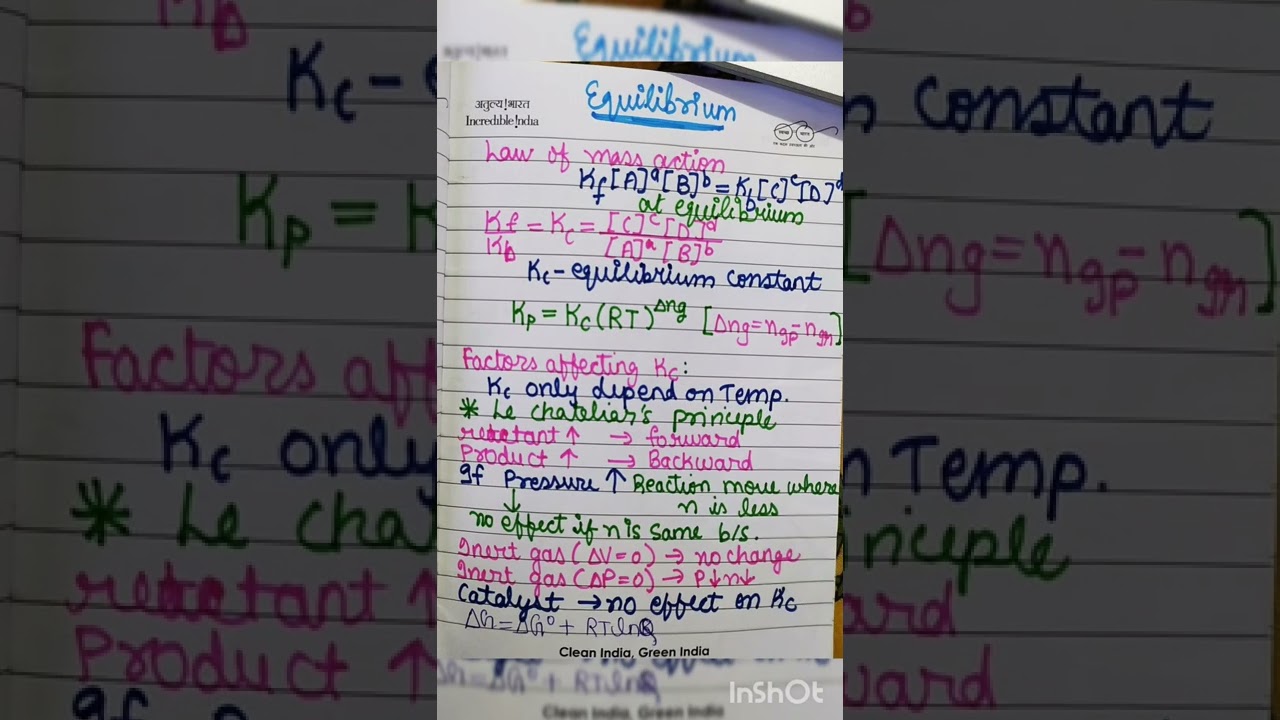 Equilibrium
अतुल्य!भारत
Incredible!ndia
Law of mass action
Kf[A]ᵃ[B]ᵇ = Kb[C]ᶜ[D]ᵈ
at equilibrium
Kf/Kb = Kc = [C]ᶜ[D]ᵈ/[A]ᵃ[B]ᵇ
Kc - equilibrium constant
Kp = Kc(RT)^Δng [Δng = ngp - ngr]
Factors affecting Kc:
Kc only depend on Temp.
* Le chatelier's principle
reactant ↑ → forward
Product ↑ → Backward
If Pressure ↑ Reaction move where
n is less
↓
no effect if n is same b/s.
Inert gas (ΔV=0) → no change
Inert gas (ΔP=0) → P↓n↓
Catalyst → no effect on Kc
ΔG = ΔG° + RTlnQ
Clean India, Green India
InShOt